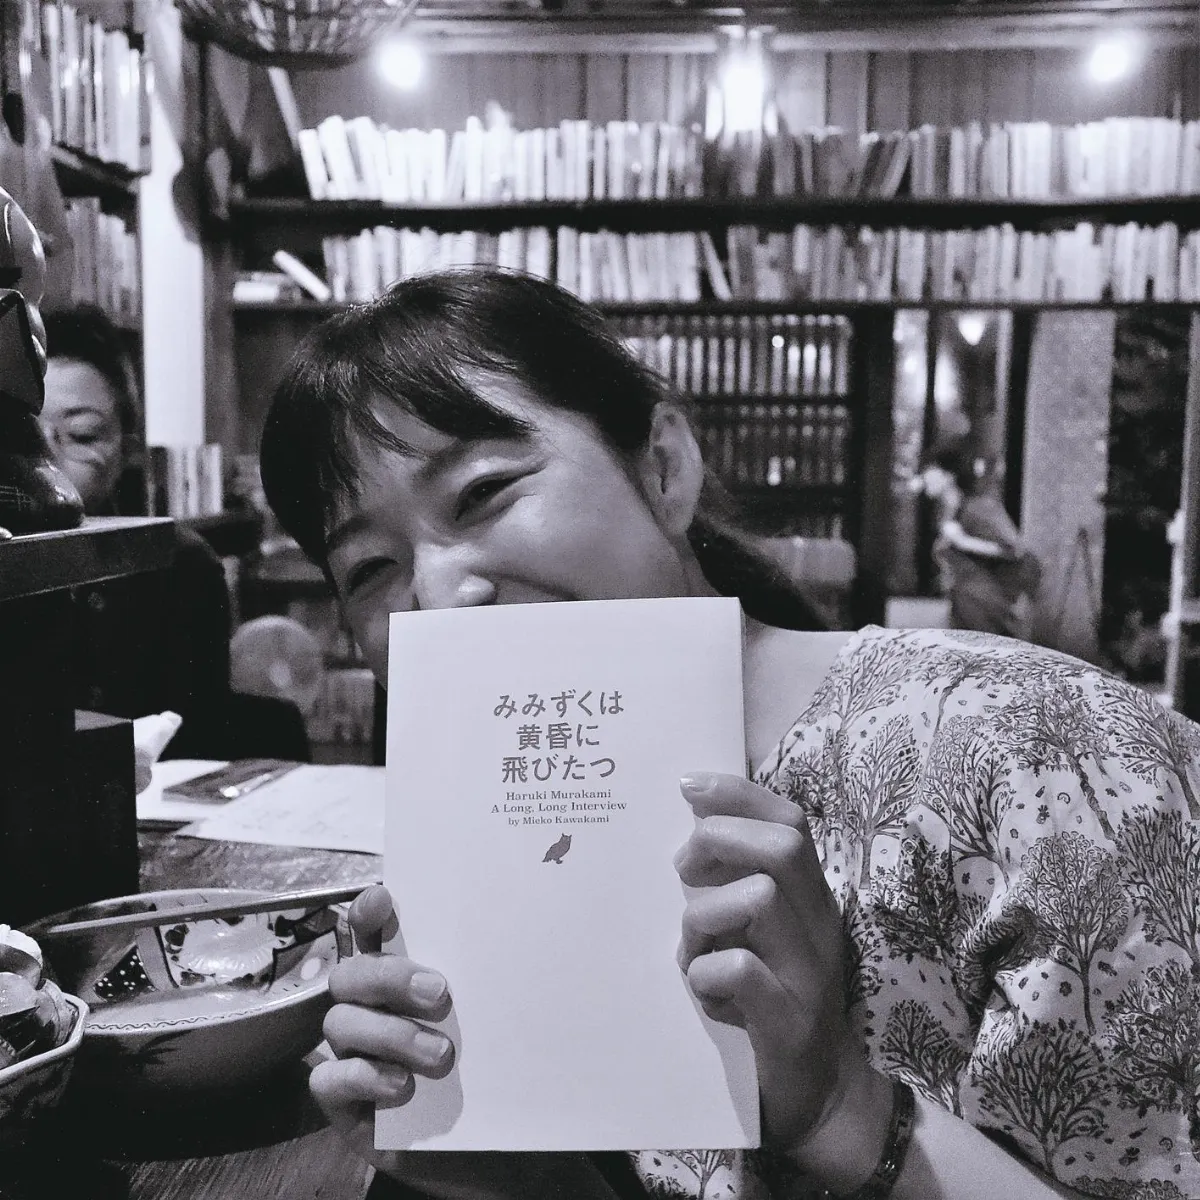 みみずくは
黄昏に
飛びたつ
Haruki Murakami
A Long, Long Interview
by Mieko Kawakami